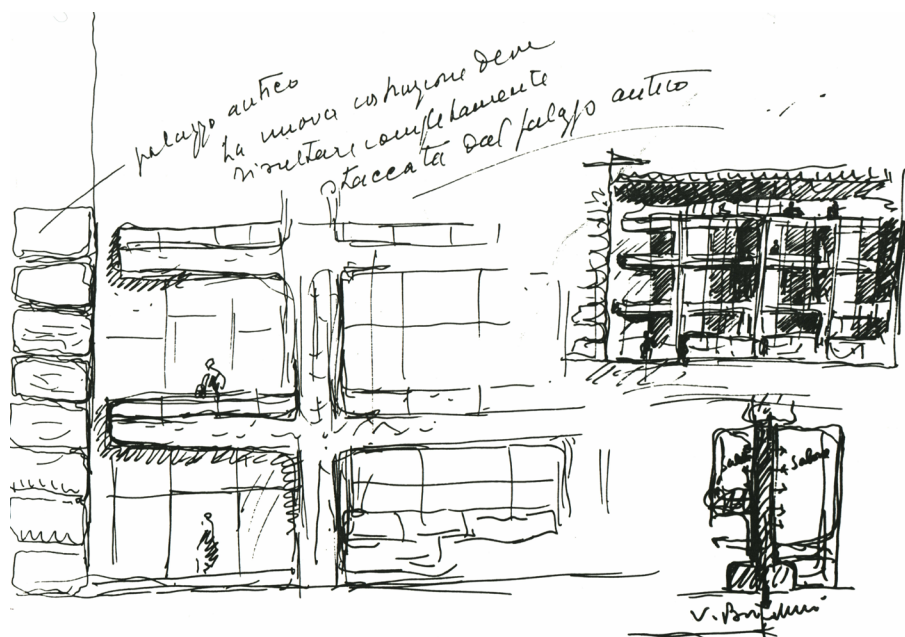 palazzo antico
la nuova costruzione deve
risultare completamente
staccata dal palazzo antico